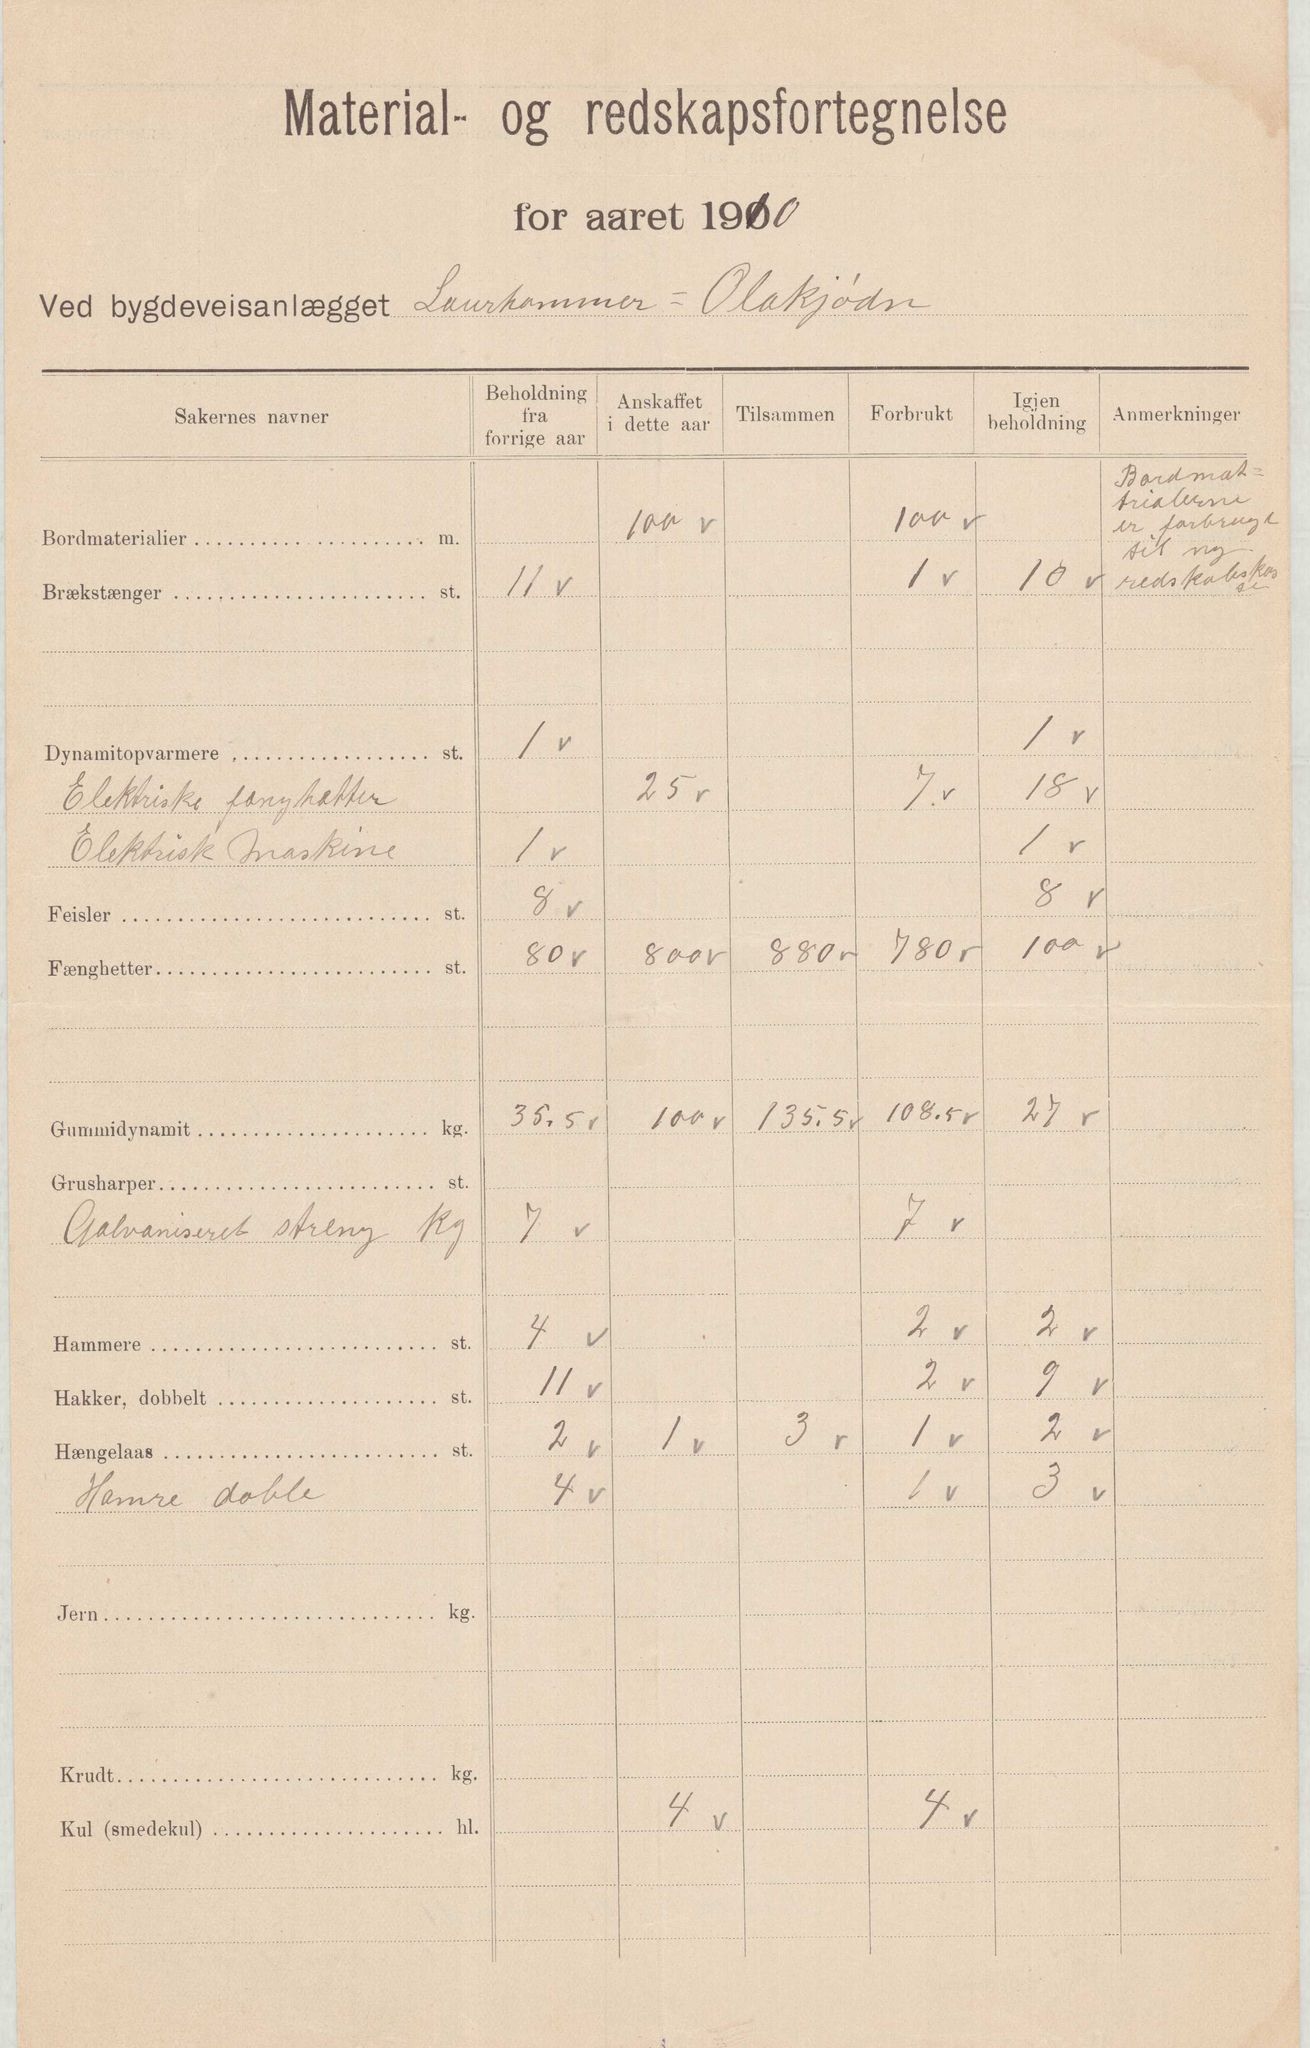 Material- og redskapsfortegnelse
for aaret 1910
Ved bygdeveisanlægget Laurhammer = Olakjødn
Sakernes navner | Beholdning fra forrige aar | Anskaffet i dette aar | Tilsammen | Forbrukt | Igjen beholdning | Anmerkninger
Bordmaterialier m. | | 100 v | | 100 v | | Bordmat=
trialerne
er forbrugt
til ny
redskabskas
se
Brækstænger st. | 11 v | | | 1 v | 10 v
Dynamitopvarmere st. | 1 v | | | | 1 v
Elektriske fænghætter | | 25 v | | 7 v | 18 v
Elektrisk Maskine | 1 v | | | | 1 v
Feisler st. | 8 v | | | | 8 v
Fænghetter st. | 80 v | 800 v | 880 v | 780 v | 100 v
Gummidynamit kg. | 35.5 v | 100 v | 135.5 v | 108.5 v | 27 v
Grusharper st.
Galvaniseret streng kg | 7 v | | | 7 v
Hammere st. | 4 v | | | 2 v | 2 v
Hakker, dobbelt st. | 11 v | | | 2 v | 9 v
Hængelaas st. | 2 v | 1 v | 3 v | 1 v | 2 v
Hamre doble | 4 v | | | 1 v | 3 v
Jern kg.
Krudt kg.
Kul (smedekul) hl. | | 4 v | | 4 v